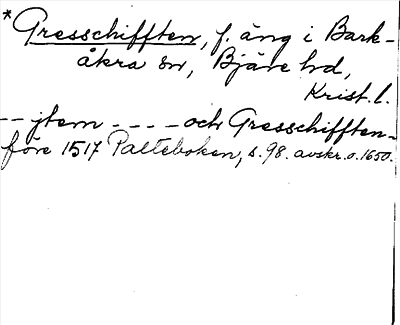 * Gresschifften, f. äng i Bark-
åkra sn, Bjäre hd,
Krist. l.
-- jtem ---- och Gresschifften -
före 1517 Palteboken, s. 98. avskr. o. 1650.